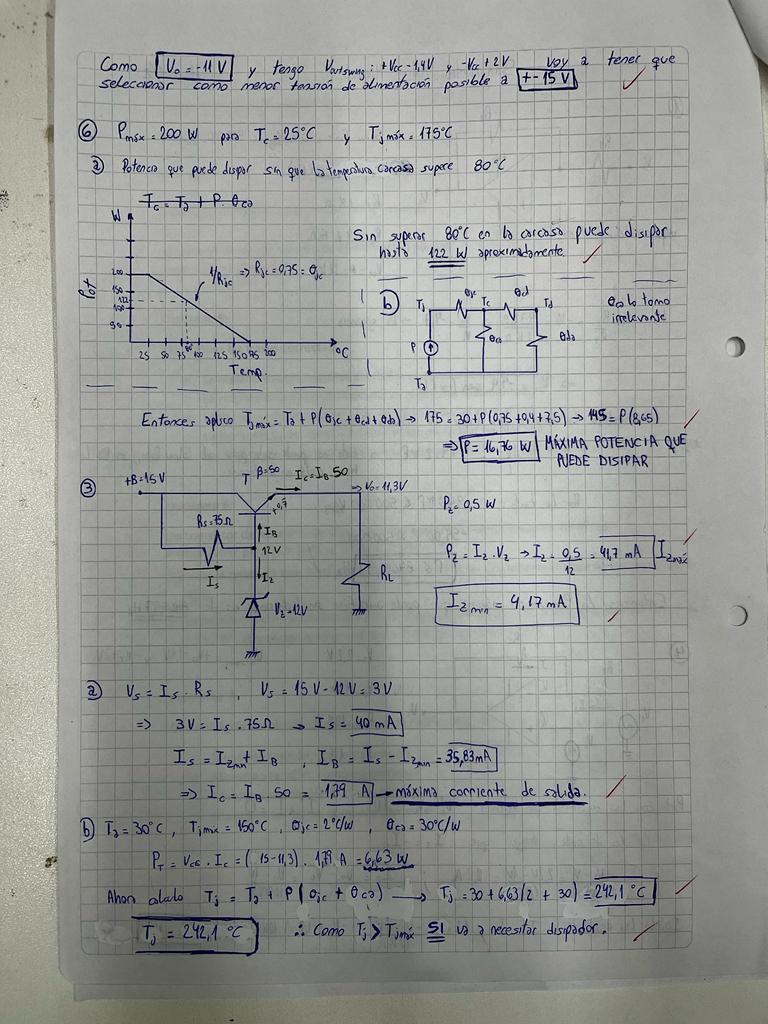 Como Vo = -11 V y tengo Voutswing: +Vcc - 1,4V y -Vcc + 2V voy a tener que
seleccionar como menor tensión de alimentación posible a +-15 V
⑥ Pmáx = 200 W para Tc = 25°C y Tjmáx = 175°C
a) Potencia que puede disipar sin que la temperatura carcasa supere 80°C
Tc = Ta + P. θca
Sin superar 80°C en la carcasa puede disipar
hasta 122 W aproximadamente.
W
Pot
200
150
122
100
50
1/Rjc => Rjc = 0,75 = θjc
25 50 75 80 100 125 150 175 200 °C
Temp.
b) Tj θjc Tc θcd Td
θca θda
P
Ta
θca lo tomo
irrelevante
Entonces aplico Tjmáx = Ta + P(θjc + θcd + θda) → 175 = 30 + P(0,75+0,4+7,5) → 145 = P(8,65)
⇒ P = 16,76 W MÁXIMA POTENCIA QUE
PUEDE DISIPAR
③ +B=15V T β=50 Ic = IB.50 → Vo = 11,3V
0,7
Rs = 75Ω
IB
12V
Is
Iz
Vz = 12V
RL
Pz = 0,5 W
Pz = Iz. Vz → Iz = 0,5/12 = 41,7 mA Izmáx
Izmin = 4,17 mA
a) Vs = Is. Rs , Vs = 15V - 12V = 3V
=> 3V = Is . 75Ω → Is = 40 mA
Is = Izmin + IB , IB = Is - Izmin = 35,83 mA
=> Ic = IB. 50 = 1,79 A → máxima corriente de salida.
b) Ta = 30°C , Tjmáx = 150°C , θjc = 2°C/W , θca = 30°C/W
PT = VCE . Ic = (15-11,3) . 1,79 A = 6,63 W
Ahora calculo Tj = Ta + P (θjc + θca) → Tj = 30 + 6,63(2 + 30) = 242,1 °C
Tj = 242,1 °C ∴ Como Tj > Tjmáx SI va a necesitar disipador.